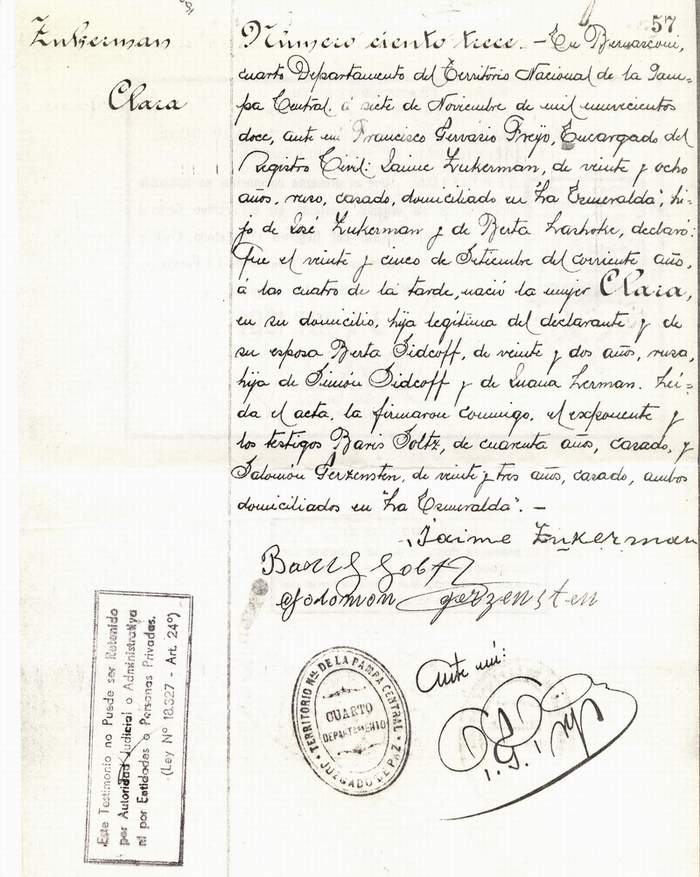 57
Zukerman
Clara
Número ciento trece. - En Bernasconi,
cuarto Departamento del Territorio Nacional de la Pam-
pa Central, á siete de Noviembre de mil novecientos
doce, ante mi Francisco Gervasio Freijo, Encargado del
Registro Civil: Jaime Zukerman, de veinte y ocho
años, ruso, casado, domiciliado en "La Esmeralda", hi-
jo de José Zukerman y de Berta, declaró:
Que el veinte y cinco de Setiembre del corriente año,
á las cuatro de la tarde, nació la mujer Clara,
en su domicilio, hija legítima del declarante y de
su esposa Berta Sidcoff, de veinte y dos años, rusa,
hija de Simón Sidcoff y de Juana Lerman. Leí-
da el acta, la firmaron conmigo, el exponente y
los testigos Baris Soltz, de cuarenta años, casado, y
Salomón Gerzensten, de veinte y tres años, casado, ambos
domiciliados en "La Esmeralda". -
Jaime Zukerman
Solomon Gerzensten
Ante mi:
TERRITORIO Nal. DE LA PAMPA CENTRAL
CUARTO
DEPARTAMENTO
JUZGADO DE PAZ
Este Testimonio no Puede ser Retenido
por Autoridad Judicial o Administrativa
ni por Entidades o Personas Privadas.
(Ley Nº 18.327 - Art. 24º)